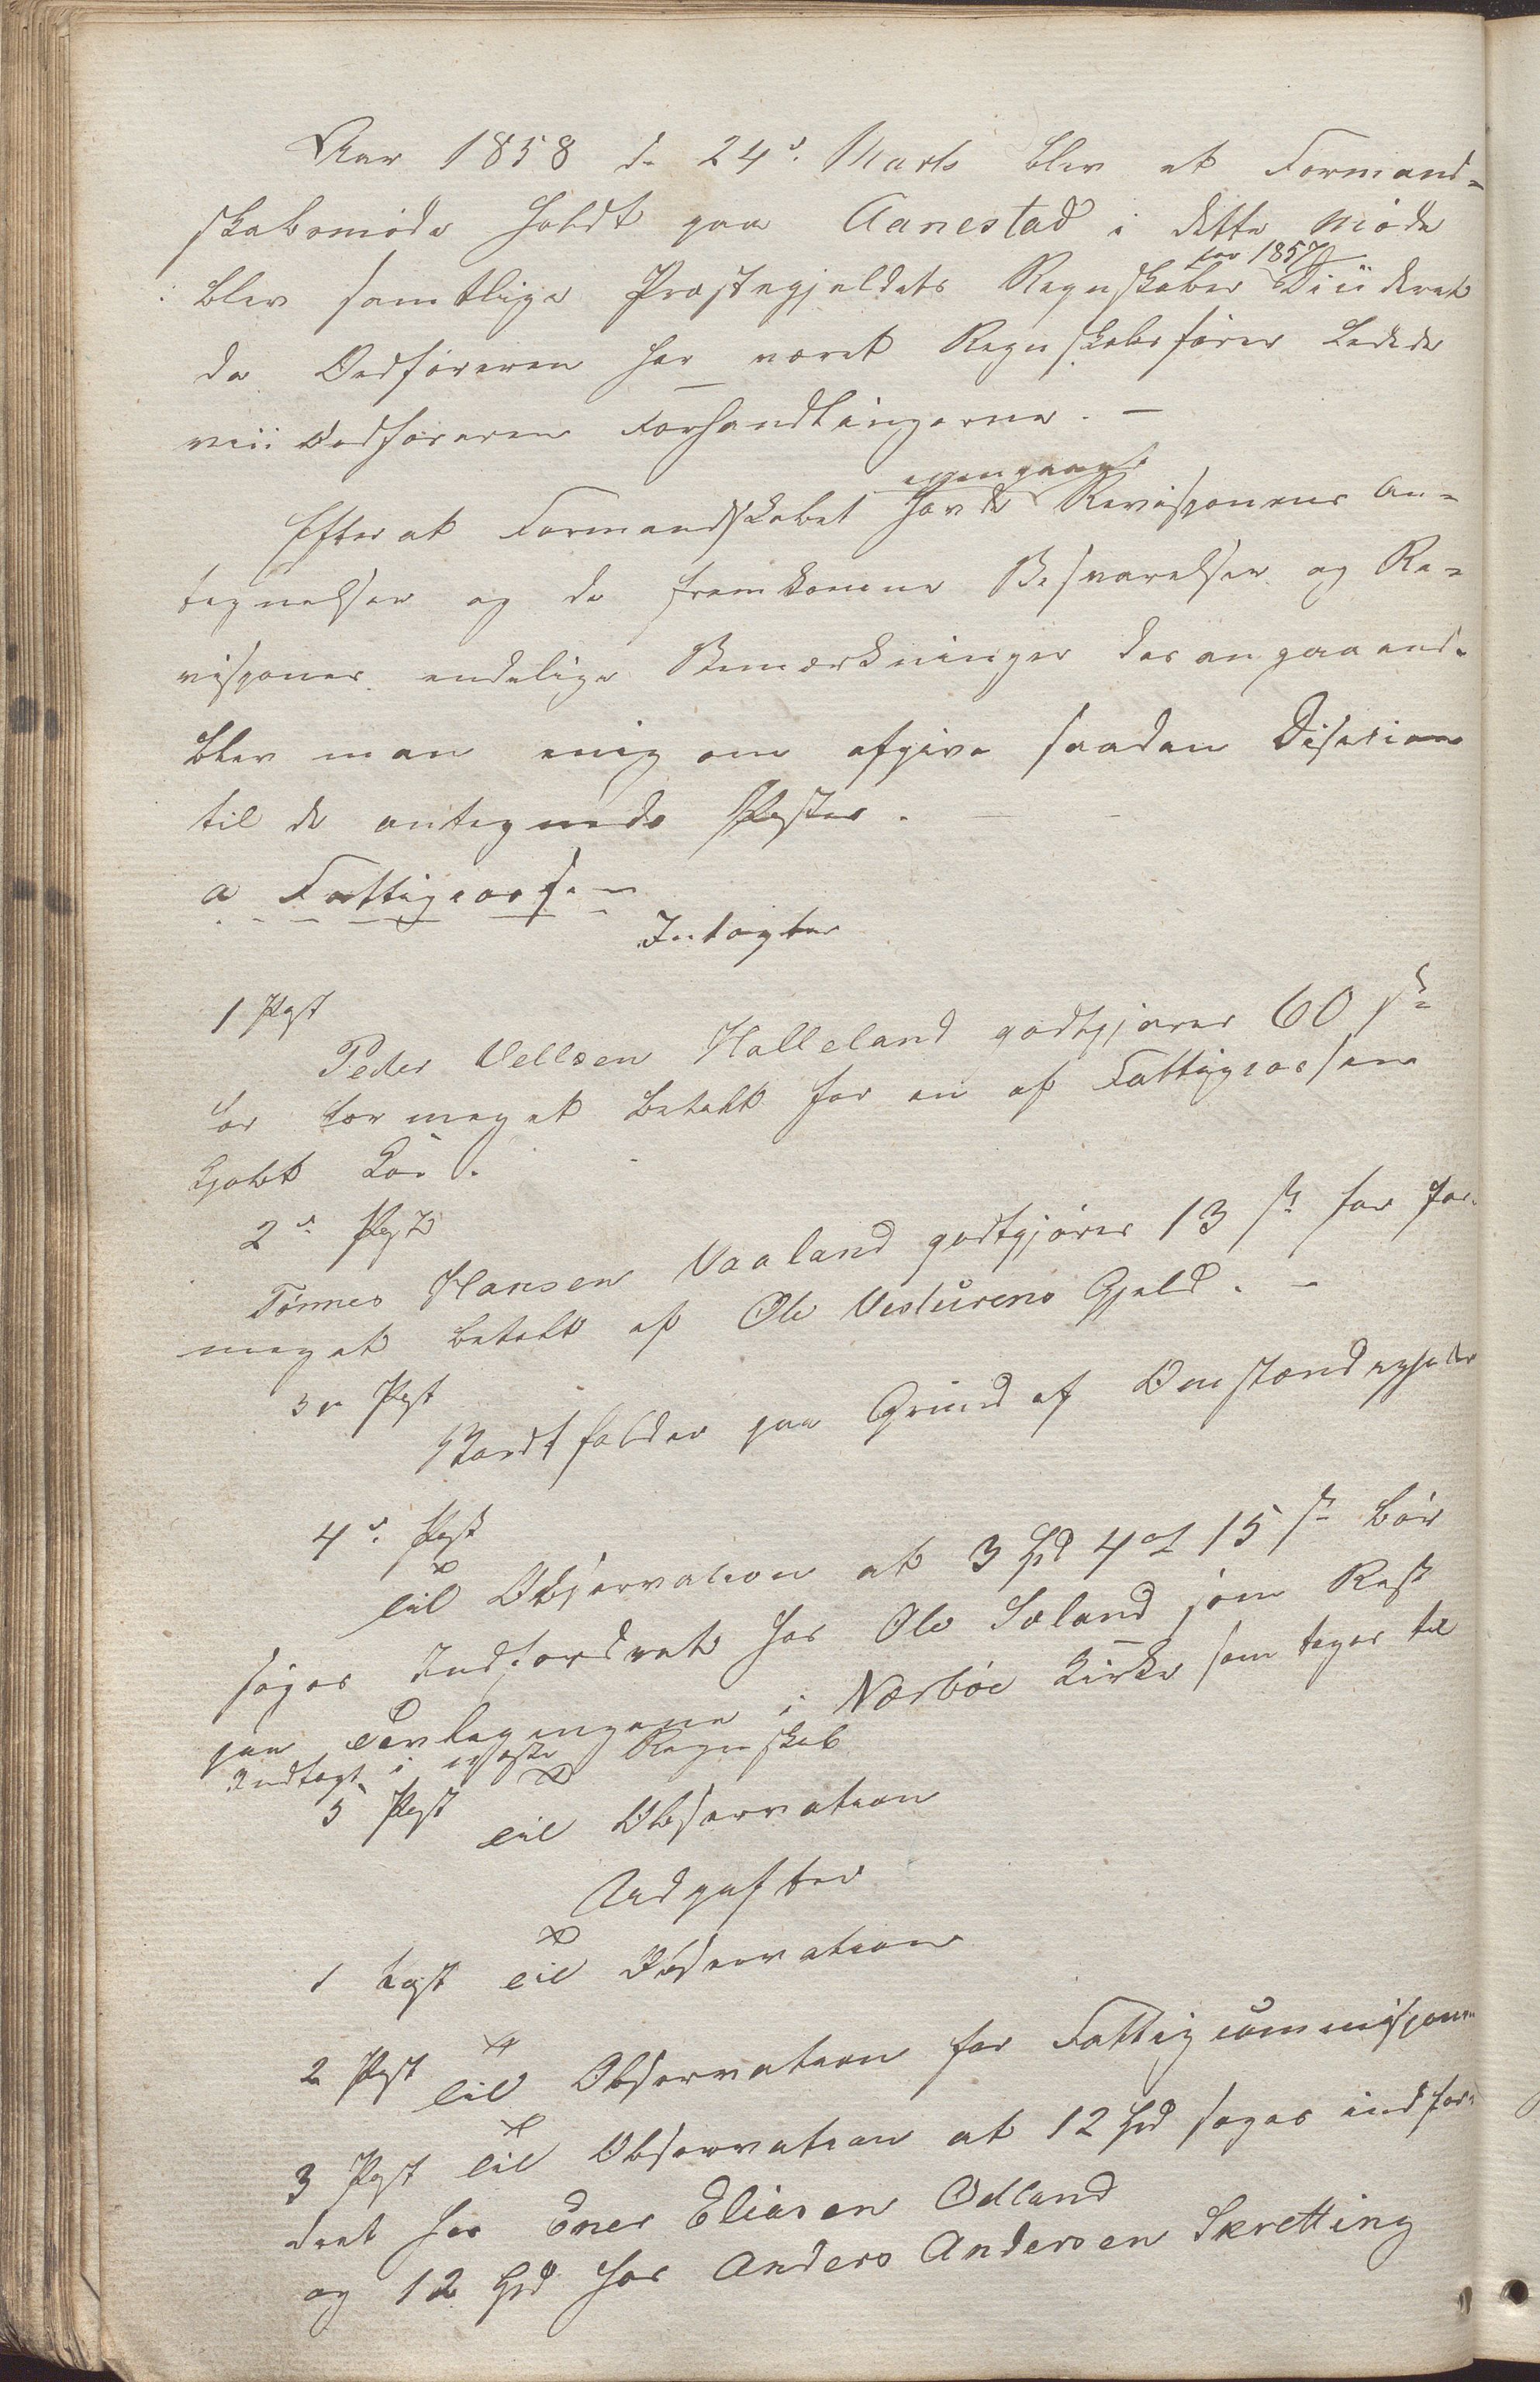 Aar 1858 d. 24de Marts blev et Formand-
skabsmöde holdt paa Aanestad i dette Möde
for 1857
blev samtlige Præstegjeldets Regnskaber Diideret
da Ordföreren har været Regnskabsförer Ledede
viiordföreren Forhandlingerne. –
igjennemgaaet
Efter at Formandskabet havde Revisjonens An-
tegnelser og de fremkomne Besvarelser og Re-
visjones endelige Bemærkninger desangaaende
blev man enig om afgive saadan Disision
til de antegnede Poster.
a Fattigcassen
Indtægter
1 Post
Peder Vellsen Halleland godtgjører 60 sk
for for meget betalt for en af Fattigcassen
kjøbt Koe.
2de Post
Tönnes Hansen Vaaland godtgjörer 13 sk for for
meget betalt af Ole Vestureno Gjeld. –
3de Post
Bortfalder paa Grund af Omstændigheder
4de Post
til Observation at 3 Spd 4 ort 15 sk bör
söges Indfordret hos Ole Søland som Rest
paa i Nærböe Kirke som tages til
Indtægt i næste Regnskab
5 Post til Observation
Udgifter
1 Post til Observation
2 Post til Observation for Fattigcommisjonen
3 Post til Observation at 12 Spd søges indfor-
dret hos Ener Eliasen Ødland
og 12 Spd hos Anders Andersen Skretting